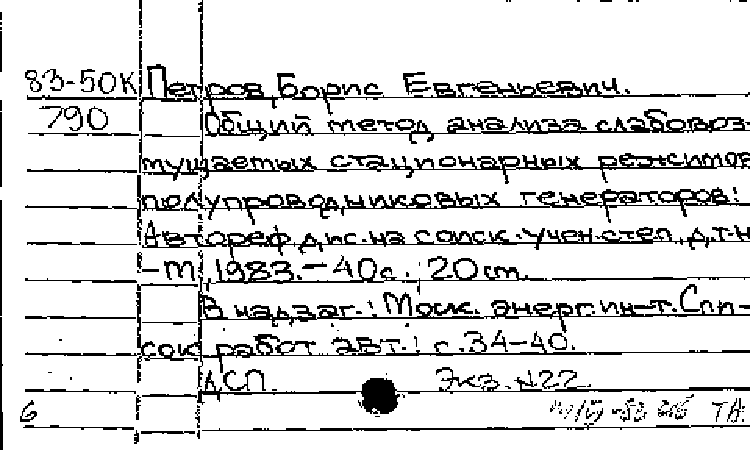 83-50К Петров, Борис Евгеньевич.
790 Общий метод анализа слабовоз-
мущаемых стационарных режимов
полупроводниковых генераторов:
Автореф. дис. на соиск. учен. степ. д.т.н
-М., 1983. - 40с. ; 20 см.
В надзаг.: Моск. энерг. ин-т. Спи-
сок работ авт.: с.34-40.
ДСП. Экз. №22
6